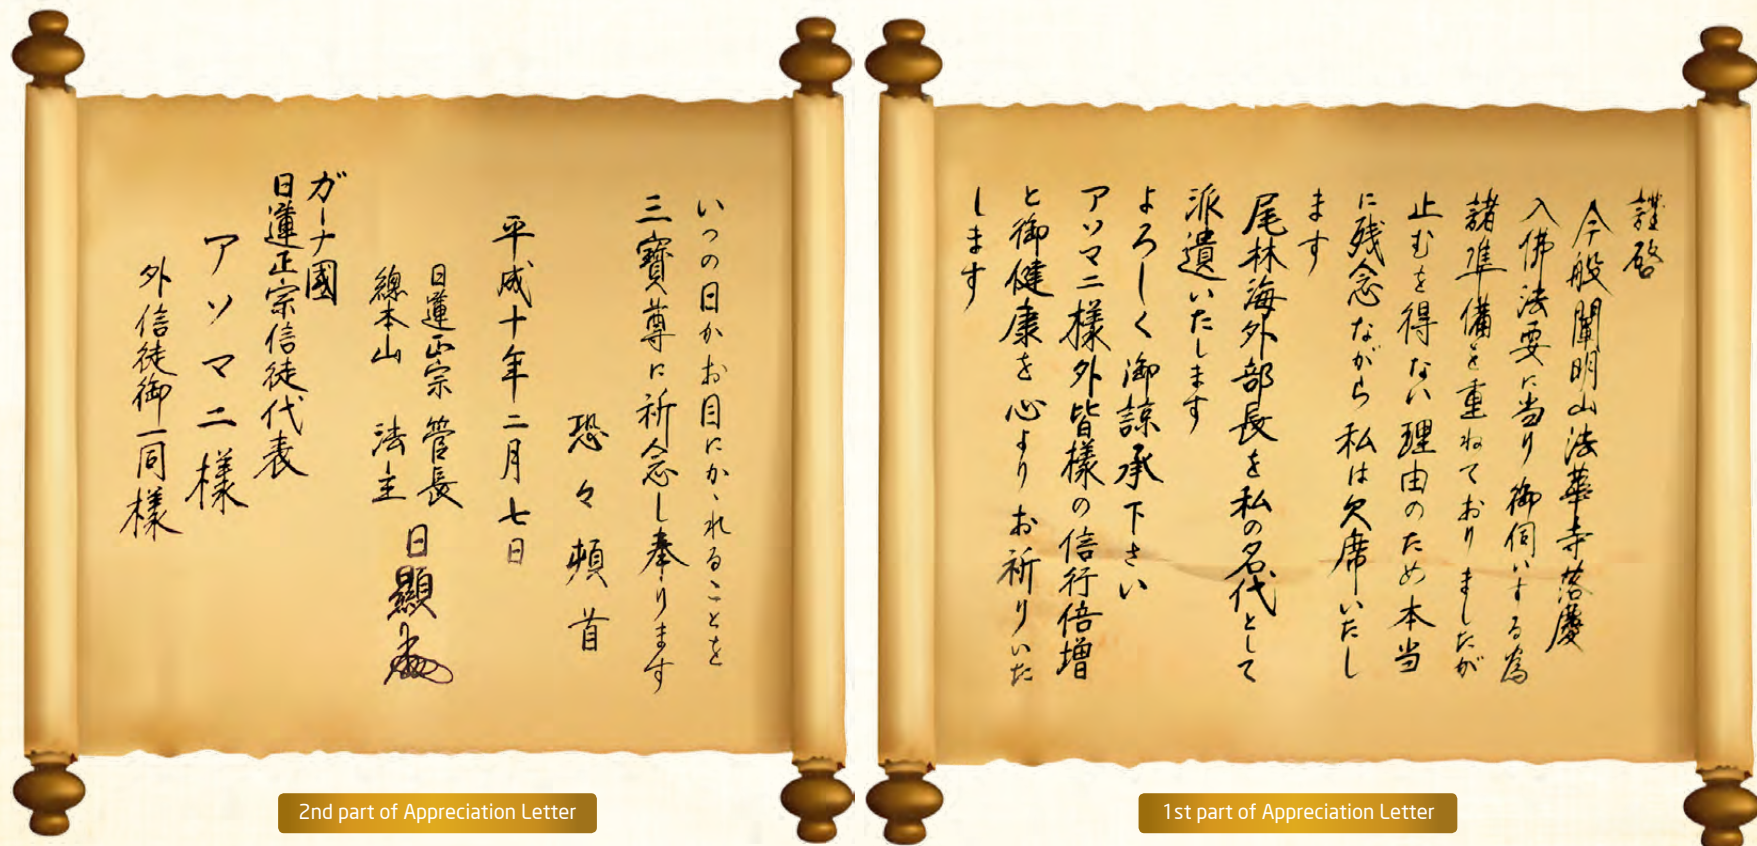 謹啓
今般開明山法華寺落慶
入佛法要に当り御伺いする為
諸準備を重ねておりましたが
止むを得ない理由のため本当
に残念ながら私は欠席いたし
ます
尾林海外部長を私の名代として
派遣いたします
よろしく御諒承下さい
アソマニ様外皆様の信行倍増
と御健康を心よりお祈りいた
します
1st part of Appreciation Letter
いつの日かお目にかゝれることを
三寶尊に祈念し奉ります
恐々頓首
平成十年二月七日
日蓮正宗 管長
總本山 法主
日顯
ガーナ國
日蓮正宗信徒代表
アソマニ様
外信徒御一同様
2nd part of Appreciation Letter